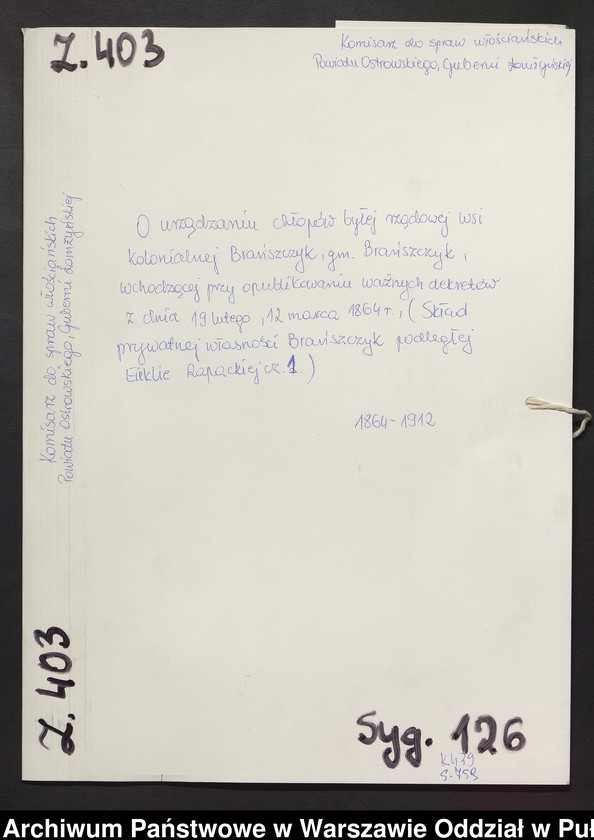 Z. 403
Komisarz do spraw włościańskich
Powiatu Ostrowskiego, Guberni Łomżyńskiej
Komisarz do spraw włościańskich
Powiatu Ostrowskiego, Guberni Łomżyńskiej
O urządzaniu chłopów byłej rządowej wsi
kolonialnej Brańszczyk, gm. Brańszczyk,
wchodzącej przy opublikowaniu ważnych dekretów
z dnia 19 lutego, 12 marca 1864 r., (Skład
prywatnej własności Brańszczyk podległej
Rapackiej cz. 1.)
1864-1912
Z. 403
Syg. 126
K. 439
S. 758
Archiwum Państwowe w Warszawie Oddział w Puł